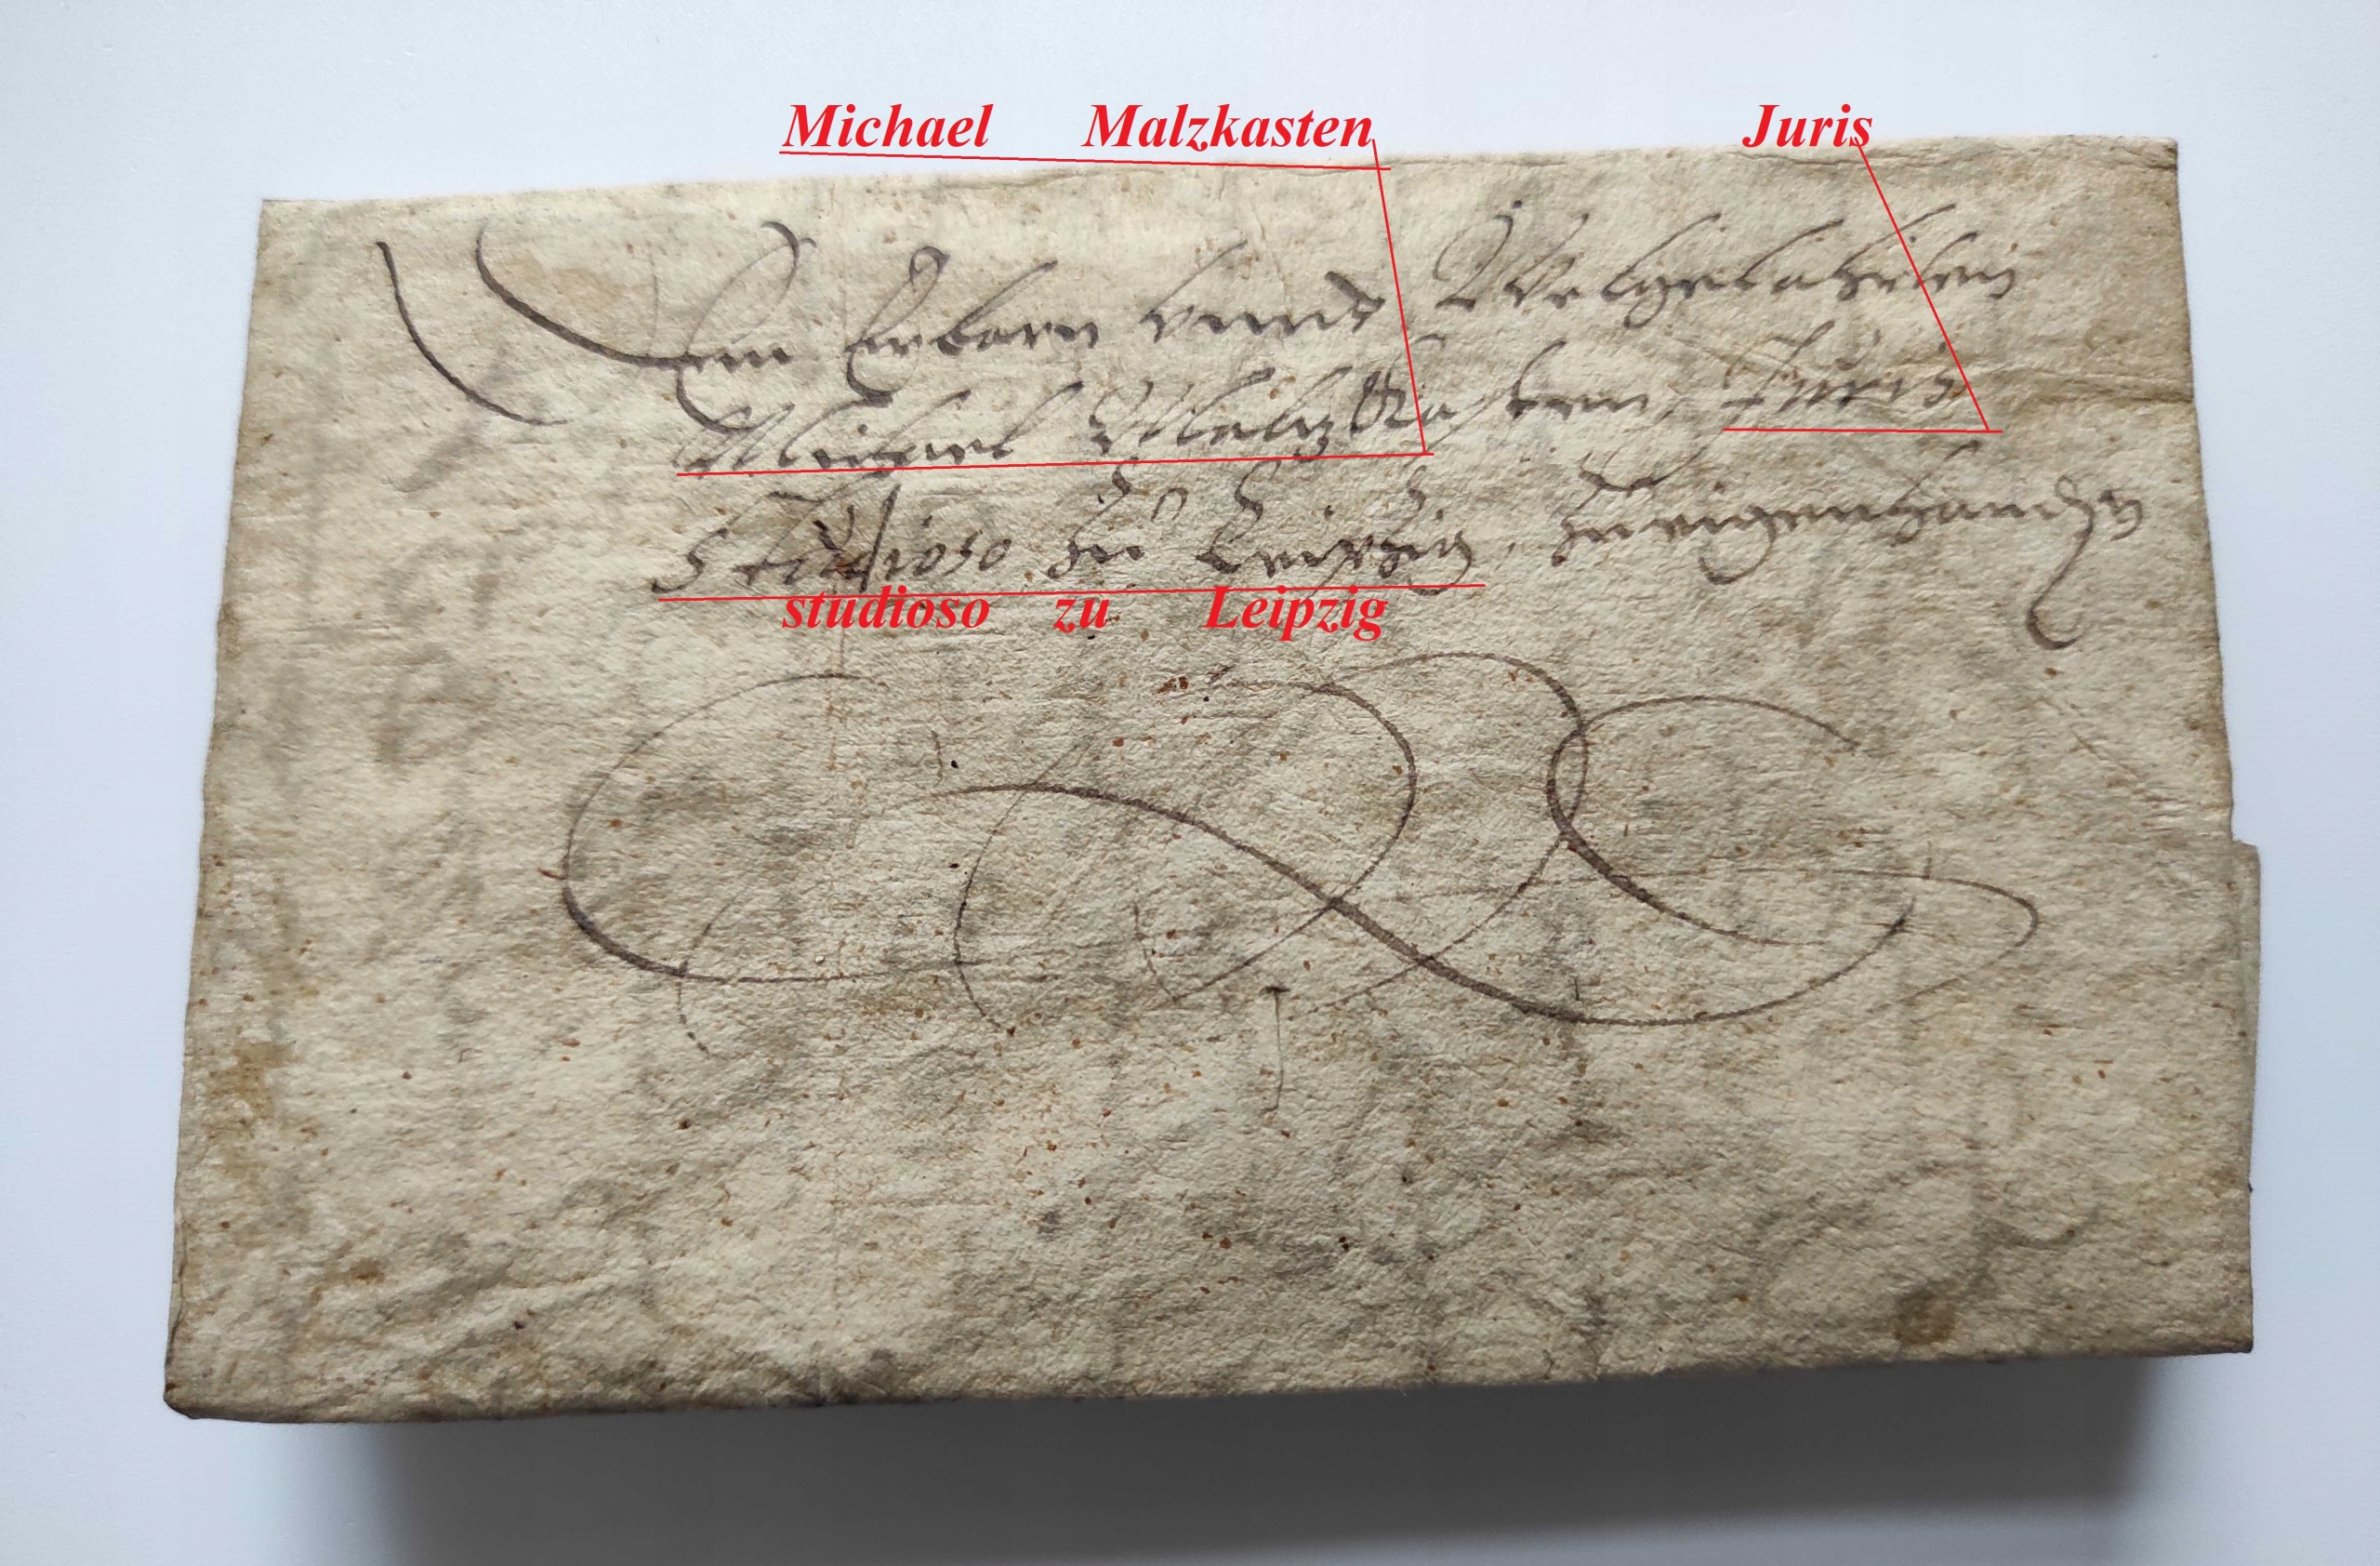 Michael Malzkasten Juris
Dem Erbarn vnnd Wolgelahrten
Michael Maltzkasten, Juris
Studioso zu Leipzig, zu eigen handen
studioso zu Leipzig